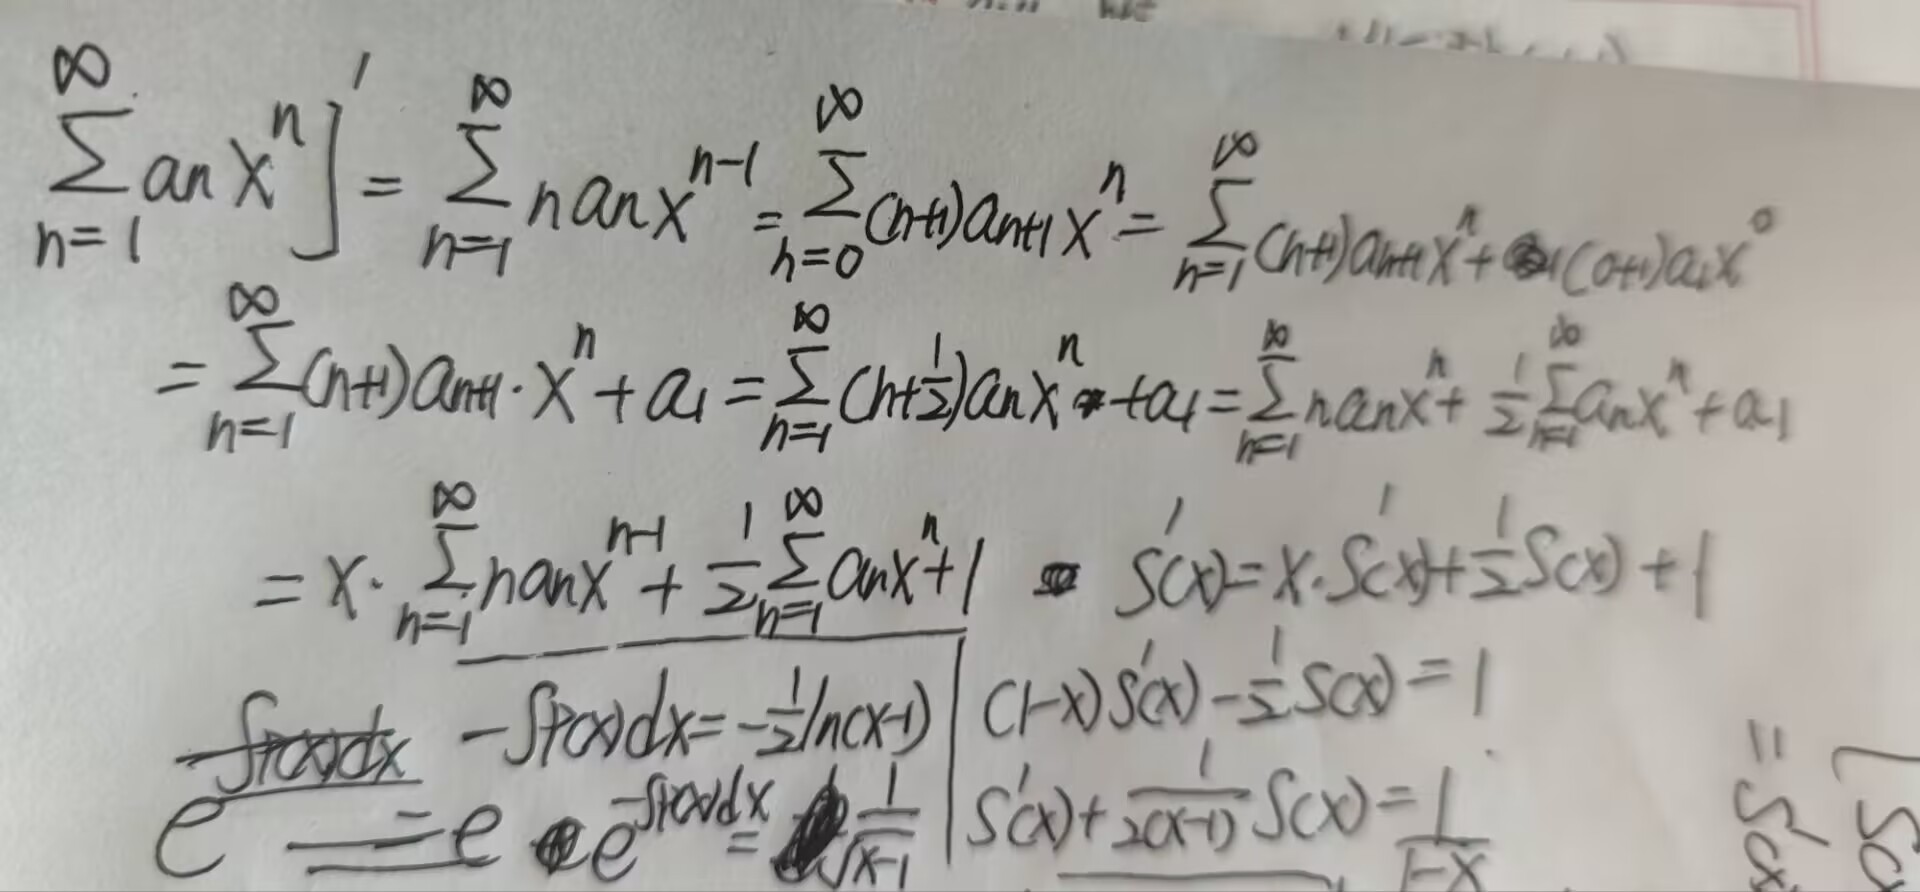 ∑_{n=1}^{∞} aₙxⁿ]′ = ∑_{n=1}^{∞} naₙx^{n-1} = ∑_{n=0}^{∞} (n+1)a_{n+1}xⁿ = ∑_{n=1}^{∞} (n+1)a_{n+1}xⁿ + (0+1)a₁x⁰
= ∑_{n=1}^{∞} (n+1)a_{n+1}·xⁿ + a₁ = ∑_{n=1}^{∞} (n+½)aₙxⁿ + a₁ = ∑_{n=1}^{∞} naₙxⁿ + ½∑_{n=1}^{∞} aₙxⁿ + a₁
= x·∑_{n=1}^{∞} naₙx^{n-1} + ½∑_{n=1}^{∞} aₙxⁿ + 1 S′(x) = x·S′(x) + ½S(x) + 1
∫P(x)dx -∫P(x)dx = -½ln(x-1)
e = e e^{-∫P(x)dx} = 1/√(x-1)
(1-x)S′(x) - ½S(x) = 1
S′(x) + 1/(2(x-1)) S(x) = 1/(1-x)
= S′(x
[S(